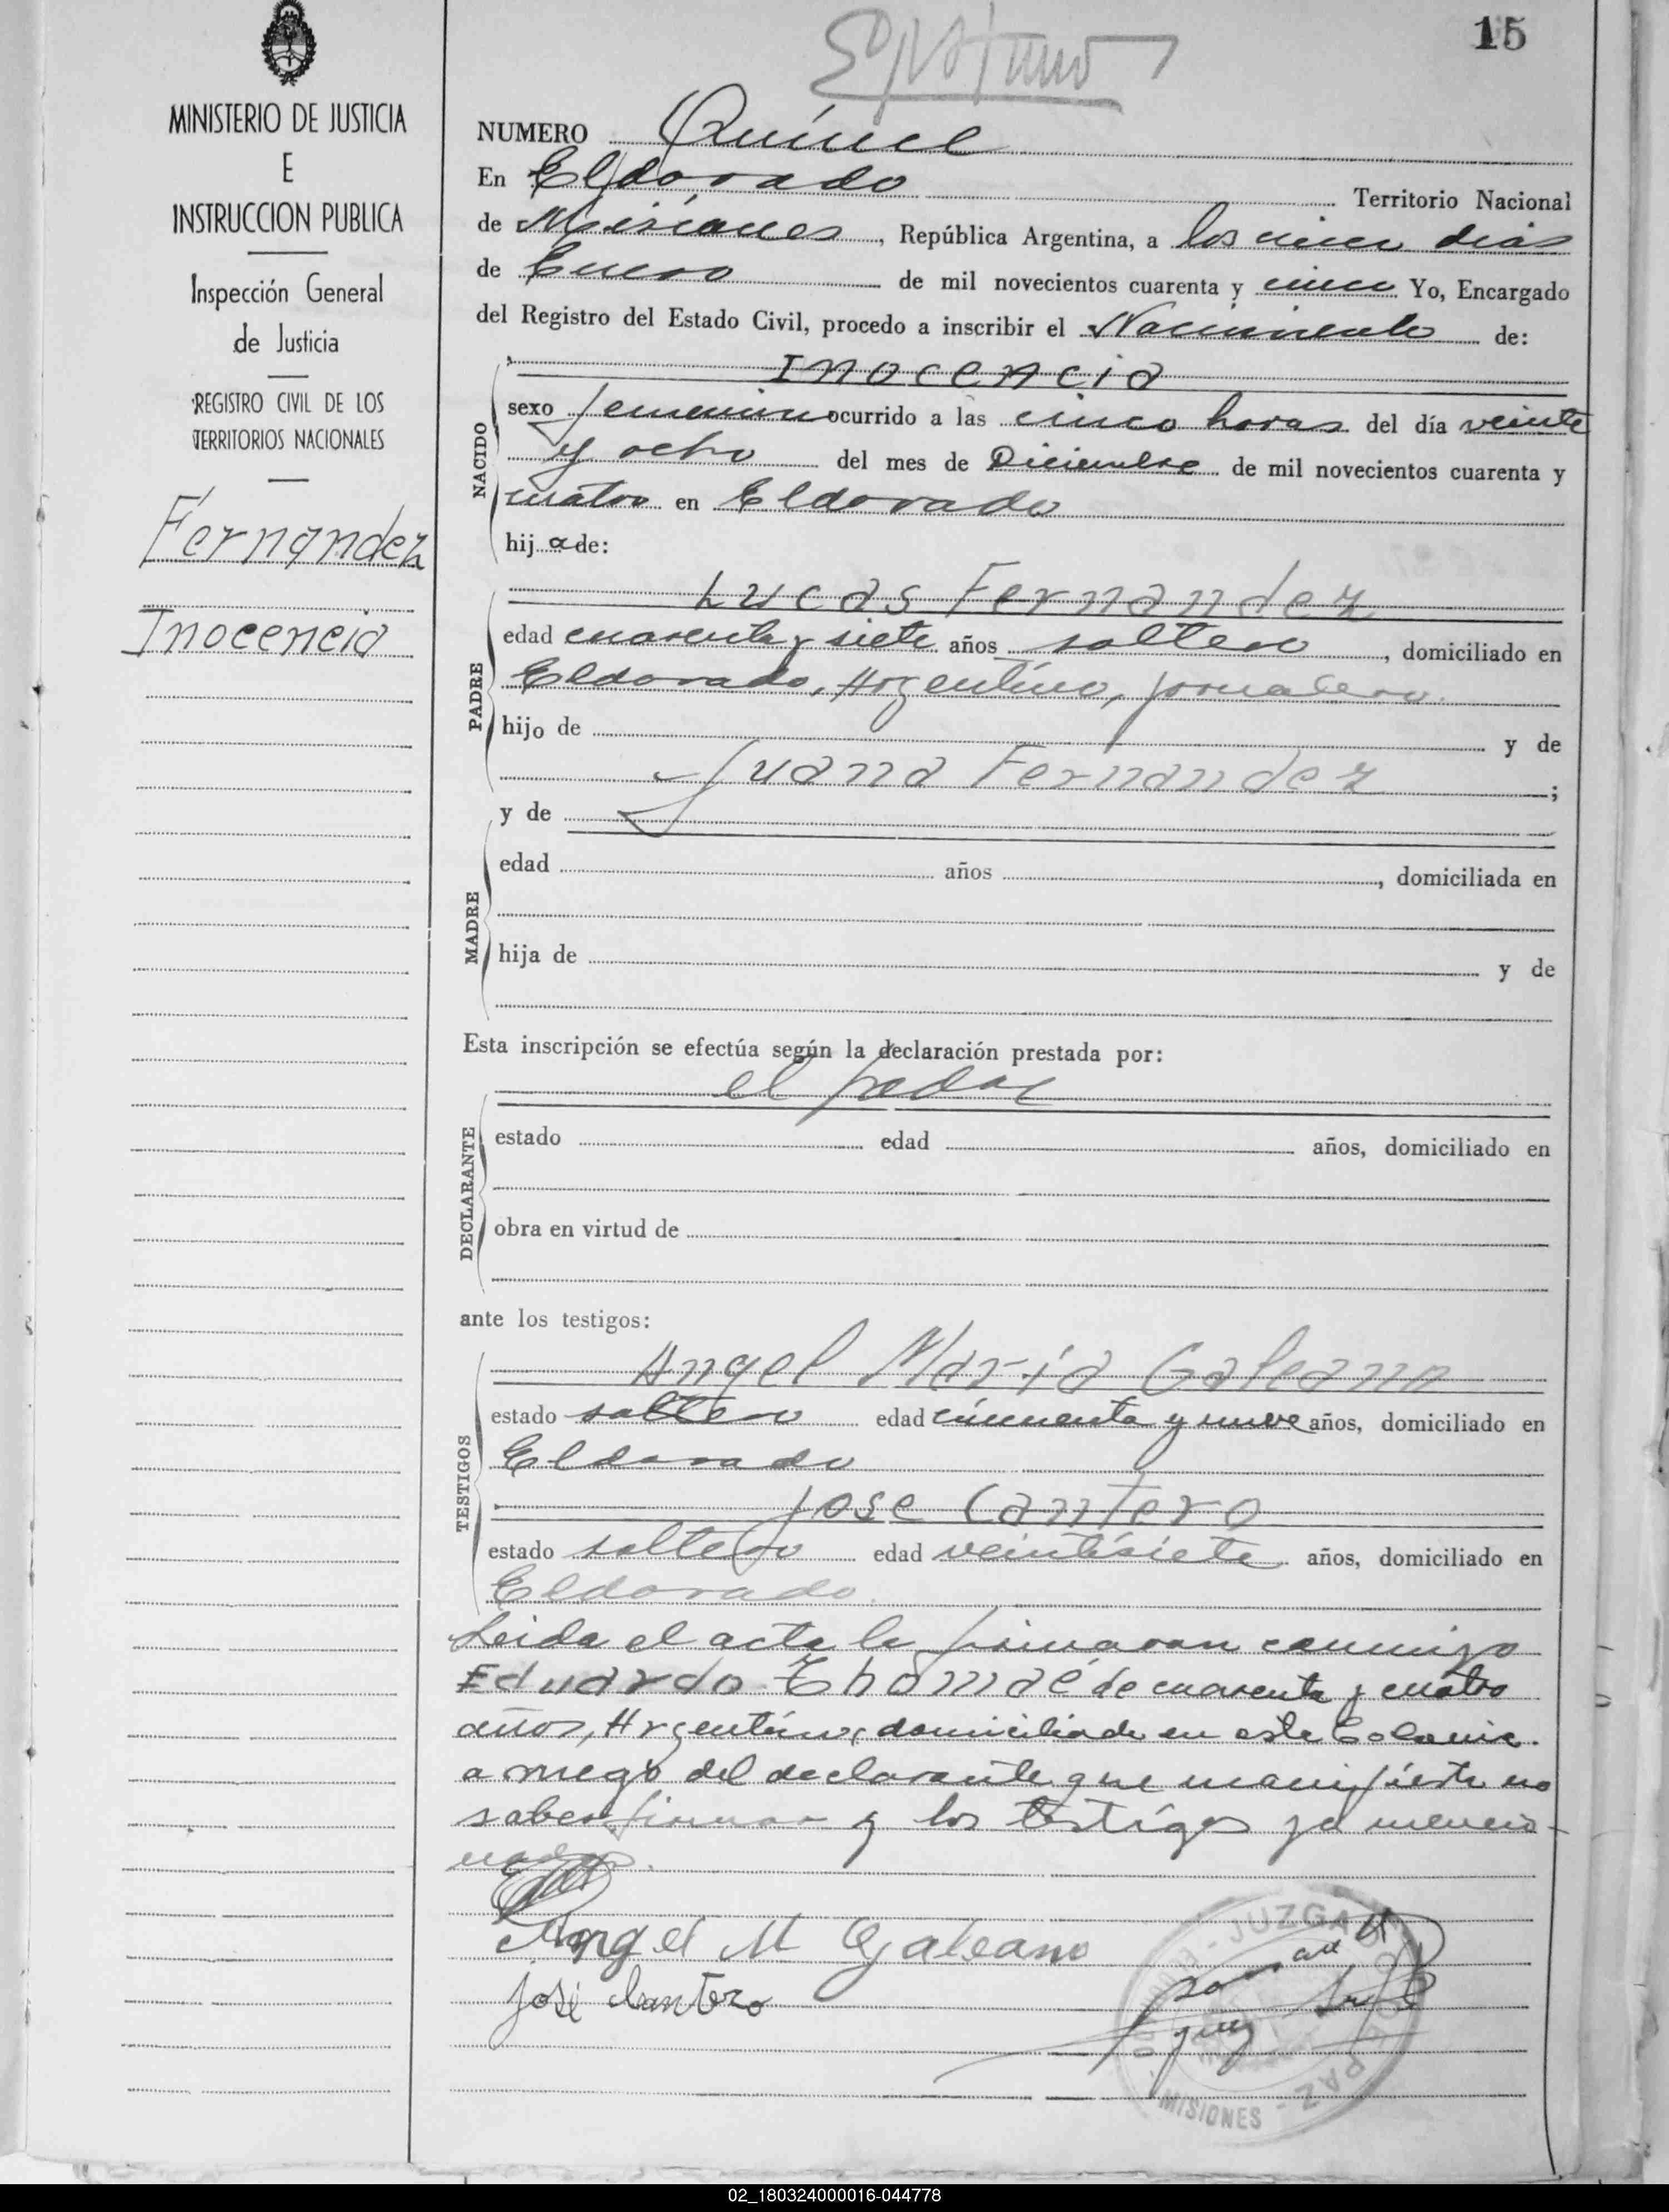 15
MINISTERIO DE JUSTICIA
E
INSTRUCCION PUBLICA
Inspección General
de Justicia
REGISTRO CIVIL DE LOS
TERRITORIOS NACIONALES
Fernandez
Inocencia
NUMERO Quince
En Eldorado Territorio Nacional
de Misiones, República Argentina, a los cinco dias
de Enero de mil novecientos cuarenta y cinco Yo, Encargado
del Registro del Estado Civil, procedo a inscribir el Nacimiento de:
NACIDO
Inocencia
sexo femenino ocurrido a las cinco horas del día veinte
y ocho del mes de Diciembre de mil novecientos cuarenta y
cuatro en Eldorado
hija de:
PADRE
Lucas Fernandez
edad cuarenta y siete años soltero, domiciliado en
Eldorado, Argentino, jornalero.
hijo de y de
Juana Fernandez;
y de
MADRE
edad años, domiciliada en
hija de y de
Esta inscripción se efectúa según la declaración prestada por:
el padre
DECLARANTE
estado edad años, domiciliado en
obra en virtud de
ante los testigos:
TESTIGOS
Angel Maria Galeano
estado soltero edad cincuenta y nueve años, domiciliado en
Eldorado
Jose Cantero
estado soltero edad veintisiete años, domiciliado en
Eldorado.
Leida el acta la firmaron conmigo
Eduardo Thomaé de cuarenta y cuatro
años, Argentino, domiciliado en esta Colonia.
a ruego del declarante que manifiesta no
saber firmar y los testigos ya mencio-
nados.
Angel M Galeano
José Cantero
JUZGADO DE PAZ - MISIONES
02_180324000016-044778